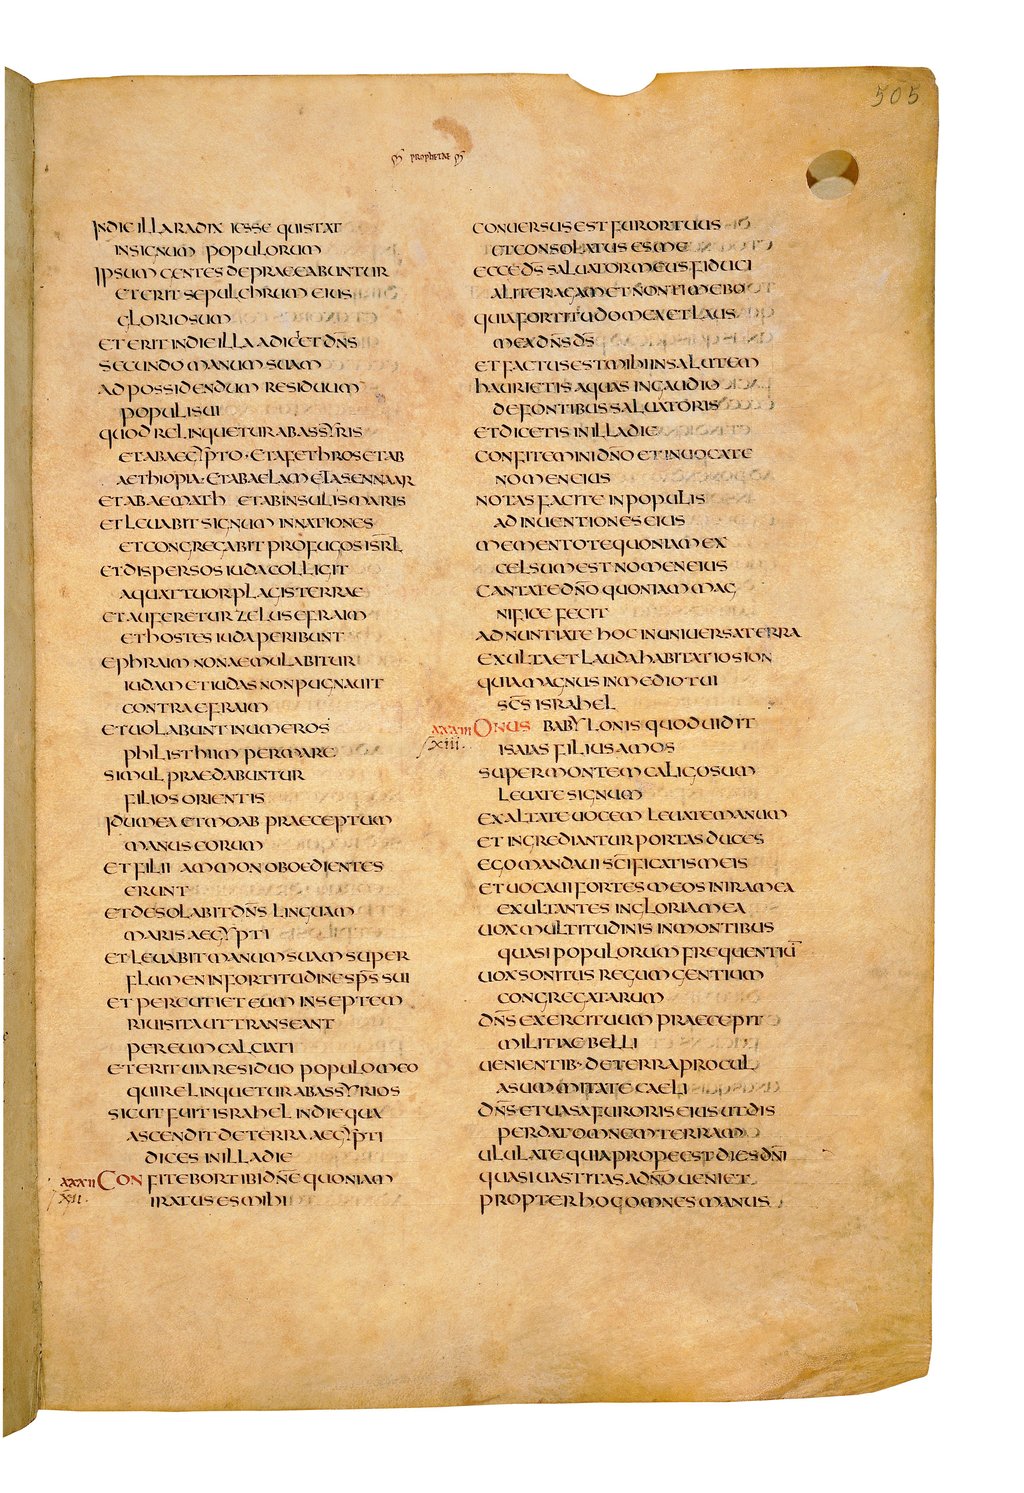 505
prophetae
INDIE ILLA RADIX IESSE QUI STAT
IN SIGNUM POPULORUM
IPSUM GENTES DEPRAECABUNTUR
ET ERIT SEPULCHRUM EIUS
GLORIOSUM
ET ERIT IN DIE ILLA ADICET DN̄S
SECUNDO MANUM SUAM
AD POSSIDENDUM RESIDUUM
POPULI SUI
QUOD RELINQUETUR AB ASSYRIS
ET AB AEGYPTO · ET AFETHROS ET AB
AETHIOPIA · ET AB AELAM ET A SENNAAR
ET AB AEMATH ET AB INSULIS MARIS
ET LEUABIT SIGNUM IN NATIONES
ET CONGREGABIT PROFUGOS ISRL̄
ET DISPERSOS IUDA COLLIGIT
A QUATTUOR PLAGIS TERRAE
ET AUFERETUR ZELUS EFRAIM
ET HOSTES IUDA PERIBUNT
EPHRAIM NON AEMULABITUR
IUDAM ET IUDAS NON PUGNAUIT
CONTRA EFRAIM
ET UOLABUNT IN UMEROS
PHILISTHIIM PER MARE
SIMUL PRAEDABUNTUR
FILIOS ORIENTIS
IDUMEA ET MOAB PRAECEPTUM
MANUS EORUM
ET FILII AMMON OBOEDIENTES
ERUNT
ET DESOLABIT DN̄S LINGUAM
MARIS AEGYPTI
ET LEUABIT MANUM SUAM SUPER
FLUMEN IN FORTITUDINE SP̄S SUI
ET PERCUTIET EUM IN SEPTEM
RIUIS ITA UT TRANSEANT
PER EUM CALCIATI
ET ERIT UIA RESIDUO POPULO MEO
QUI RELINQUETUR AB ASSYRIOS
SICUT FUIT ISRAHEL IN DIE QUA
ASCENDIT DE TERRA AEGYPTI
DICES IN ILLA DIE
XXXII CONFITEBOR TIBI DN̄E QUONIAM
XII. IRATUS ES MIHI
CONUERSUS EST FUROR TUUS
ET CONSOLATUS ES ME
ECCE DS̄ SALUATOR MEUS FIDUCI
ALITER AGAM ET NON TIMEBO
QUIA FORTITUDO MEA ET LAUS
MEA DN̄S DS̄
ET FACTUS EST MIHI IN SALUTEM
HAURIETIS AQUAS IN GAUDIO
DE FONTIBUS SALUATORIS
ET DICETIS IN ILLA DIE
CONFITEMINI DN̄O ET INUOCATE
NOMEN EIUS
NOTAS FACITE IN POPULIS
ADINUENTIONES EIUS
MEMENTOTE QUONIAM EX
CELSUM EST NOMEN EIUS
CANTATE DN̄O QUONIAM MAG
NIFICE FECIT
ADNUNTIATE HOC IN UNIUERSA TERRA
EXULTA ET LAUDA HABITATIO SION
QUIA MAGNUS IN MEDIO TUI
SC̄S ISRAHEL
XXXIII ONUS BABYLONIS QUOD UIDIT
XIII. ISAIAS FILIUS AMOS
SUPER MONTEM CALIGOSUM
LEUATE SIGNUM
EXALTATE UOCEM LEUATE MANUM
ET INGREDIANTUR PORTAS DUCES
EGO MANDAUI SC̄IFICATIS MEIS
ET UOCAUI FORTES MEOS IN IRA MEA
EXULTANTES IN GLORIA MEA
UOX MULTITUDINIS IN MONTIBUS
QUASI POPULORUM FREQUENTIŪ
UOX SONITUS REGUM GENTIUM
CONGREGATARUM
DN̄S EXERCITUUM PRAECEPIT
MILITIAE BELLI
UENIENTIB· DE TERRA PROCUL
A SUMMITATE CAELI
DN̄S ET UASA FURORIS EIUS UT DIS
PERDAT OMNEM TERRAM
ULULATE QUIA PROPE EST DIES DN̄I
QUASI UASTITAS A DN̄O UENIET
PROPTER HOC OMNES MANUS